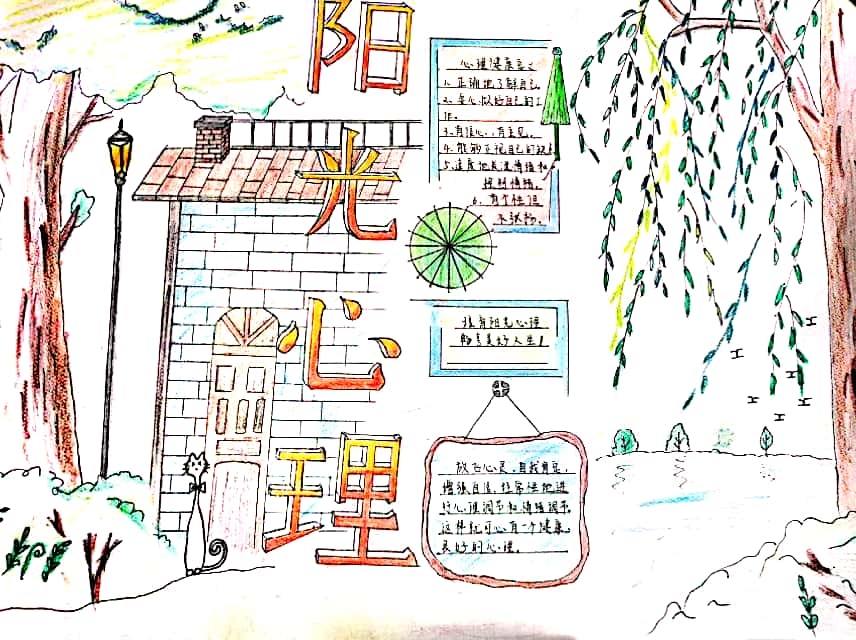 阳
光
心
理
心理健康意义
1.正确地了解自己
2.安心,做好自己的工
作。
3.有信心,有主见。
4.能够正视自己的缺点
5.适度地表达情绪和
控制情绪。
6.有个性但
不张扬。
拥有阳光心理
畅享美好人生!
放飞心灵,自我肯定,
增强自信,经常性地进
行心理调节和情绪调节
这样就可以有一个健康
良好的心理。